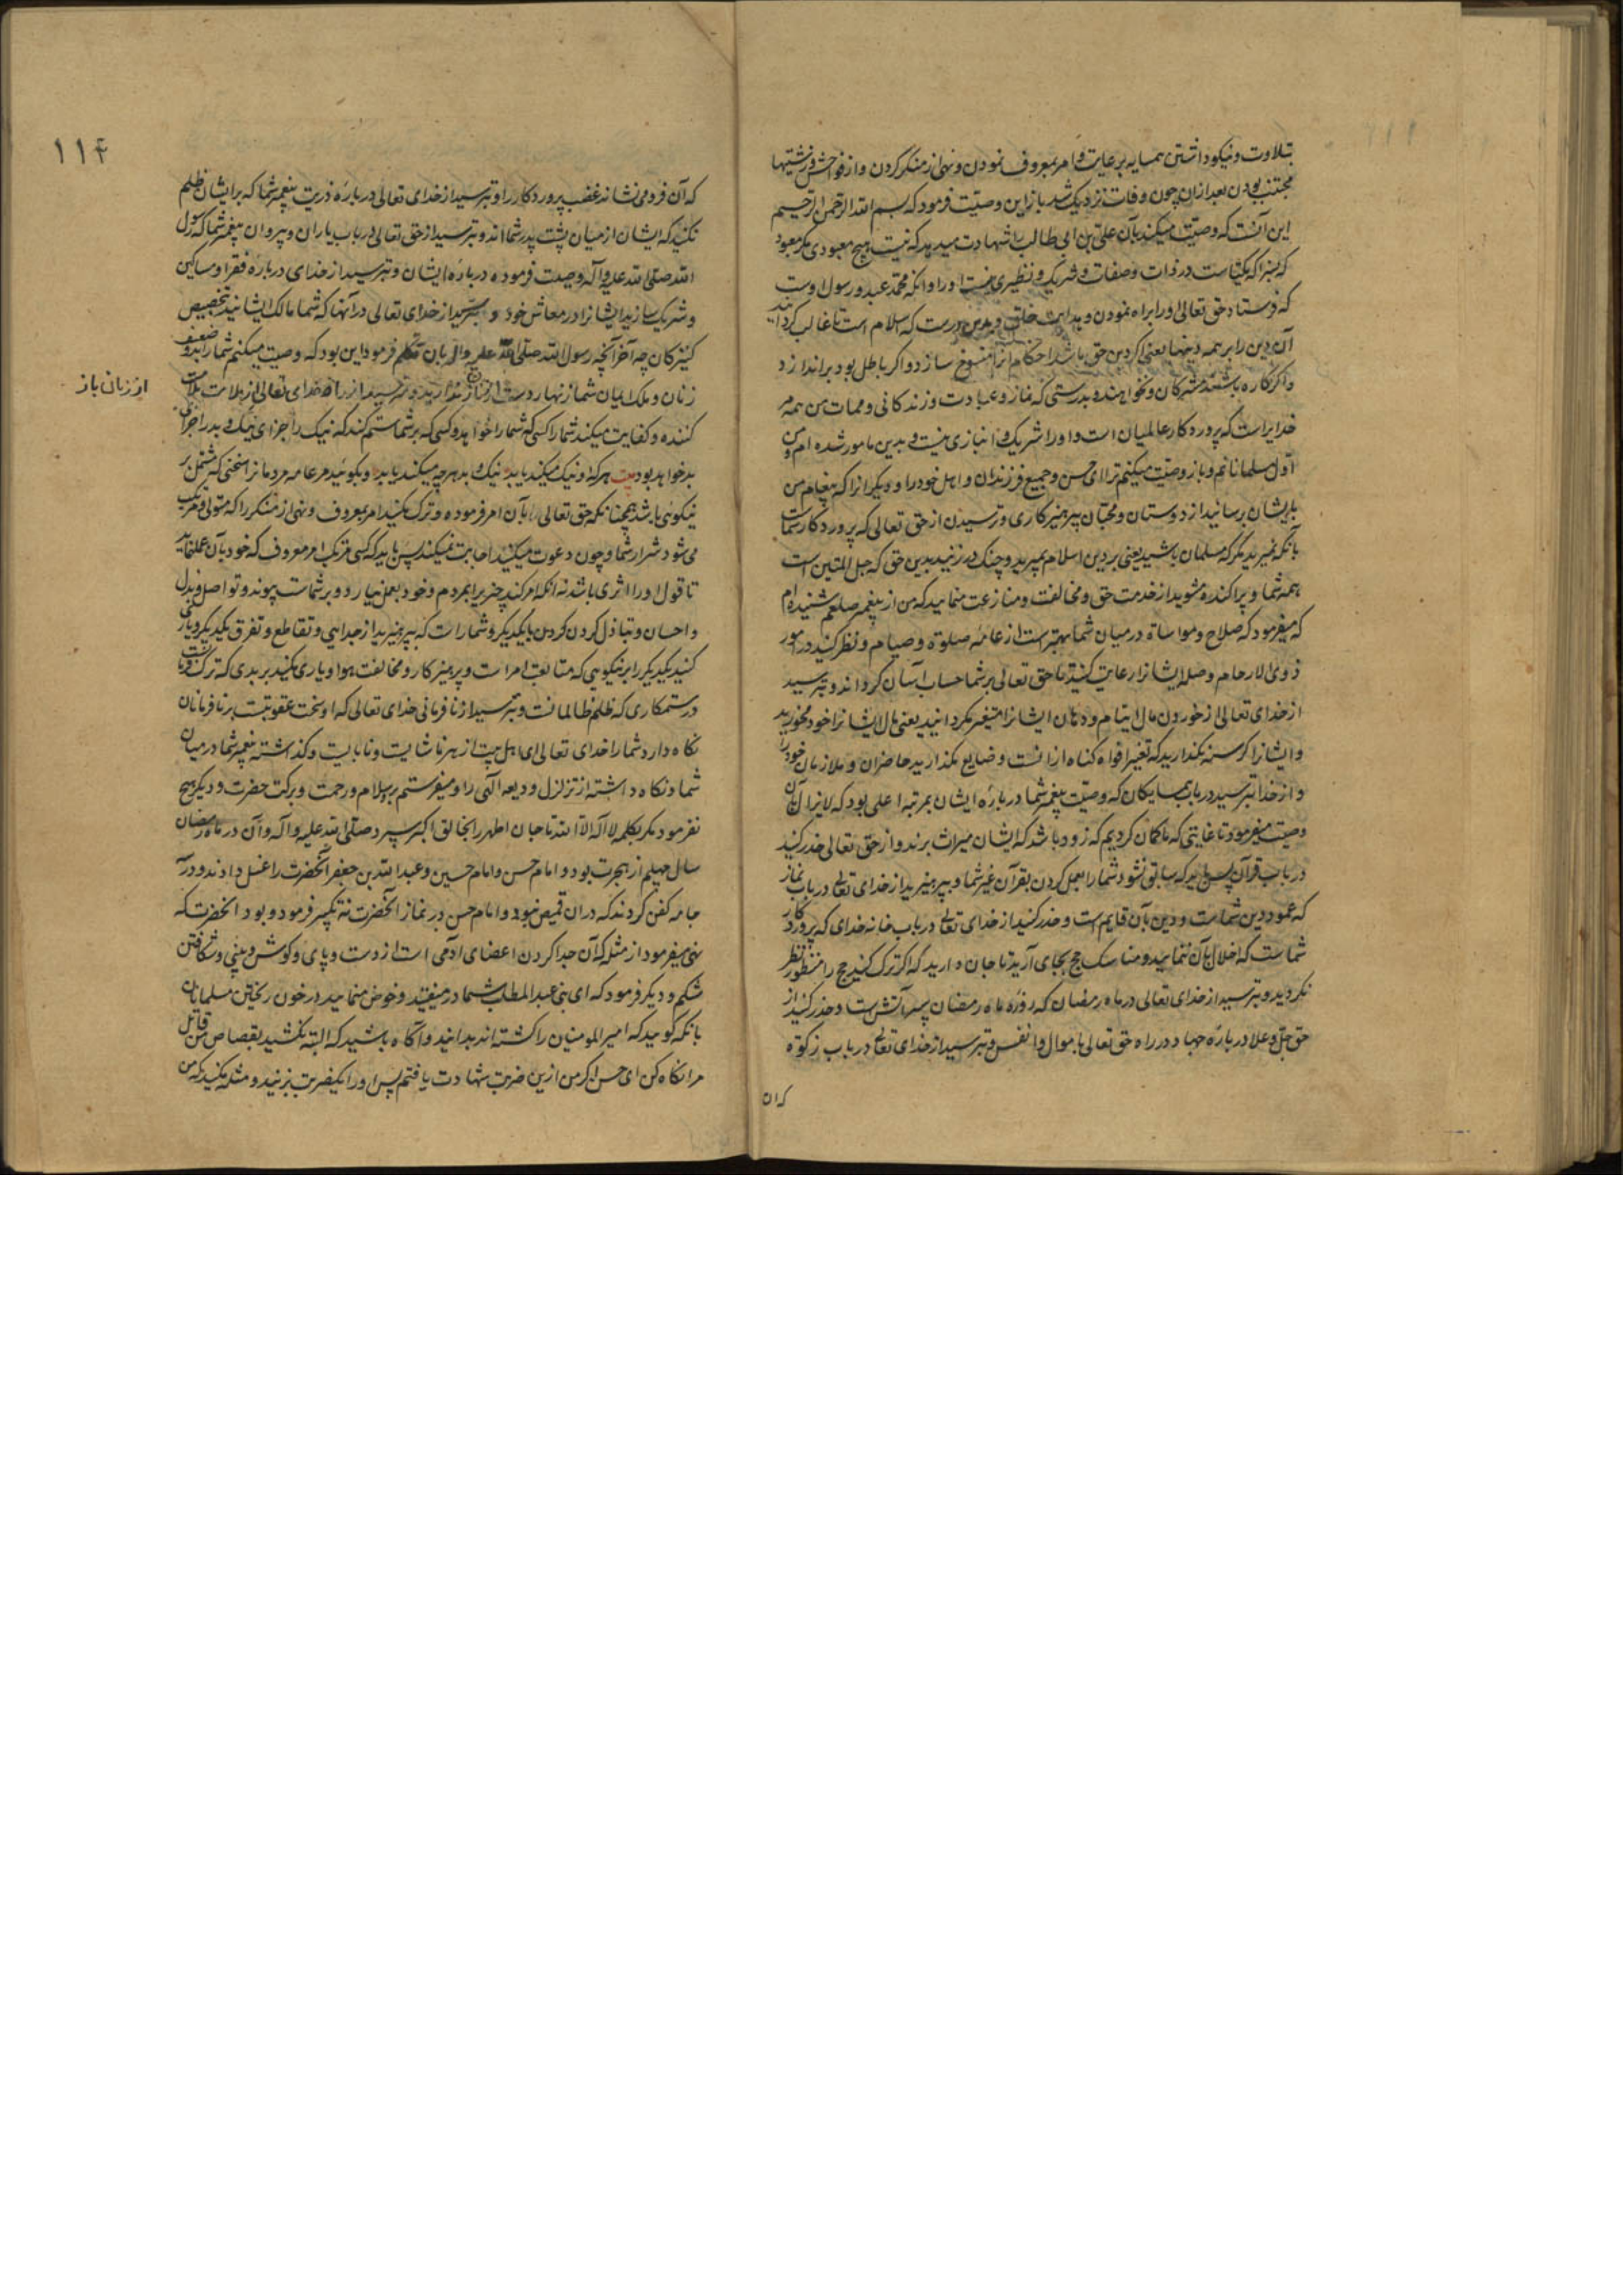 بتلاوت و نیکو داشتن همسایه برعایت و امر بمعروف نمودن و نهی از منکر کردن و از فواحش و زشتیها
مجتنب بودن بعد ازان چون وفات نزدیک شد باز این وصیّت فرمود که بسم الله الرّحمن الرّحیم
این آنست که وصیّت میکند بآن علیّ بن ابی طالب با شهادت میدهد که نیست هیچ معبودی مکر معبود
که یکتاست در ذات و صفات و شریک و نظیری نیست او را و انکه محمّد عبد و رسول اوست
که فرستاد حق تعالی او را براه نمودن و هدایت خلق و بدین درست که اسلام است تا غالب کرداند
آن دین را بر همه دینها یعنی اکر دین حق باشد احکام انرا منسوخ سازد و اکر باطل بود براندازد
و اکر کاره باشند مشرکان و نخواهنده بدرستی که نماز و عبادت و زندکانی و ممات من همه مر
خدایراست که پروردکار عالمیان است و او را شریک و انبازی نیست و بدین مامور شده ام و من
اوّل مسلمانانم و باز وصیّت میکنم ترا ای حسن و جمیع فرزندان و اهل خود را و دیکر انرا که پیغام من
بایشان برسانید از دوستان و محبّان بپرهیزکاری و ترسیدن از حق تعالی که پروردکار شماست
بآنکه نمیرید مکر که مسلمان باشید یعنی بر دین اسلام بمیرید و چنک در زنید بدین حق که حبل المتین است
همه شما و پراکنده مشوید از خدمت حق و مخالفت و منازعت منمایید که من از پیغمبر صلعم شنیده ام
که میفرمود که صلاح و مواساة در میان شما بهتر است از عامّه صلوة و صیام و نظر کنید در امور
ذوی الارحام و صله ایشانرا رعایت کنید تا حق تعالی بر شما حساب آسان کرداند و بترسید
از خدای تعالی از خوردن مال ایتام و دهان ایشانرا متغیر مکردانید یعنی مال ایشانرا خود مخورید
و ایشانرا کرسنه مکذارید که تغییر افواه کناه از انست و ضایع مکذارید حاضران و ملازمان خود را
و از خدا بترسید در باب همسایکان که وصیّت پیغمبر شما درباره ایشان بمرتبه اعلی بود که لایزال بآن
وصیّت میفرمود تا غایتی که ما کمان کردیم که زود باشد که ایشان میراث برند و از حق تعالی حذر کنید
در باب قرآن پس باید که سابق نشود شما را بعمل کردن بقرآن غیر شما و بپرهیزید از خدای تعالی در باب نماز
که عمود دین شماست و دین بآن قایم است و حذر کنید از خدای تعالی در باب خانه خدای که پروردکار
شماست که اخلال بآن ننمایید و مناسک حج بجای آرید تا جان دارید که اکر ترک کنید حج را منظور نظر
نکردید و بترسید از خدای تعالی در ماه رمضان که روزه ماه رمضان سپر آتش است و حذر کنید از
حق جلّ و علا درباره جهاد در راه حق تعالی باموال و انفس و بترسید از خدای تعالی در باب زکوة
که ان
۱۱۴
که آن فرومی نشاند غضب پروردکار را و بترسید از خدای تعالی درباره ذریت پیغمبر شما که بر ایشان ظلم
نکنید که ایشان از میان پشت پدر شما اند و بترسید از حق تعالی در باب یاران و پیروان پیغمبر شما که رسول
الله صلّی الله علیه و آله وصیت فرموده درباره ایشان و بترسید از خدای درباره فقرا و مساکین
و شریک سازید ایشانرا در معاش خود و بترسید از خدای تعالی در آنها که شما مالک ایشانید بتخصیص
کنیزکان چه آخر آنچه رسول الله صلّی الله علیه و آله بآن تکلم فرمود این بود که وصیت میکنم شما را بدو ضعیف
زنان و ملک ایمان شما زنهار دست از نماز ندارید و مترسید از راه خدای تعالی از ملامت ملامت
از زنان باز
کننده و کفایت میکند شما را کسی که شما را خواهد و کسی که بر شما ستم کند که نیک را جزای نیک و بد را جزای
بد خواهد بود بیت هر که او نیک میکند یابد نیک و بد هر چه میکند یابد و بکوئید مر عامه مردمانرا سخنی که مشتمل بر
نیکوئی باشد همچنانکه حق تعالی بآن امر فرموده و ترک مکنید امر بمعروف و نهی از منکر را که متولی و مرتکب
می شود شرار شما و چون دعوت میکنید اجابت نمیکند پس باید که کسی مرتکب امر معروف که خود بآن عمل نماید
تا قول او را اثری باشد نه انکه امر کند بچیزی مردم و خود بعمل نیارد و بر شماست پیوند و تواصل و بذل
و احسان و تباذل کردن کردن با یکدیکر و شما راست که بپرهیزید از جدایی و تقاطع و تفرق یکدیکر و یاری
کنید یکدیکر را بر نیکویی که متابعت امر است و پرهیزکار و مخالفت هوا و یاری مکنید بر بدی که ترک
در ستمکاری که ظلم ظالمانست و بترسید از نافرمانی خدای تعالی که او سخت عقوبتست بر نافرمانان
نکاه دارد شما را خدای تعالی ای اهل بیت از هر ناشایست و نابایست و کذاشته پیغمبر شما در میان
شما و نکاه داشته از تزلزل و دیعه آلهی را و میفرستم بر سلام و رحمت و برکت حضرت و دیکر هیچ
نفرمود مکر بکلمه لا اله الّا الله تا جان اطهر را بخالق اکبر سپرد صلّی الله علیه و آله و آن در ماه رمضان
سال چهلم از هجرت بود و امام حسن و امام حسین و عبد الله بن جعفر آنحضرت را غسل دادند و در
جامه کفن کردند که دران قمیص نبود و امام حسن در نماز آنحضرت نه تکبیر فرمود و بود آنحضرت که
نهی میفرمود از مثله که آن جدا کردن اعضای آدمی است از دست و پای و کوش و بینی و شکافتن
شکم و دیکر فرمود که ای بنی عبد المطلب شما در میفتید و خوض منمایید در خون ریختن مسلمانان
بانکه کویید که امیر المومنیان را کشته اند بدانید و آکاه باشید که البته نکشید بقصاص من قاتل
مرا نکاه کن ای حسن اکر من ازین ضربت شهادت یافتم پس او را یکضربت بزنید و مثله مکنید که من